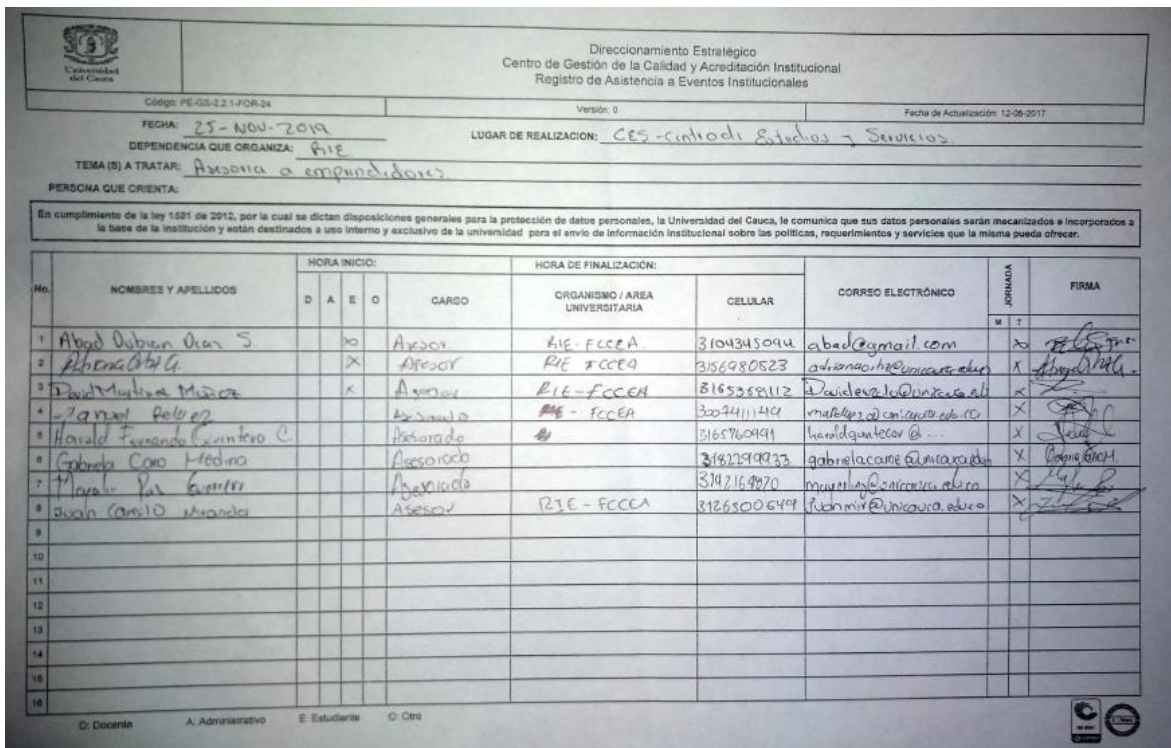 Universidad
del Cauca
Direccionamiento Estratégico
Centro de Gestión de la Calidad y Acreditación Institucional
Registro de Asistencia a Eventos Institucionales
Código: PE-GS-2.2.1-FOR-24 Versión: 0 Fecha de Actualización: 12-06-2017
FECHA: 25-NOV-2019 LUGAR DE REALIZACION: CES-Centro de Estudios y Servicios
DEPENDENCIA QUE ORGANIZA: RIE
TEMA (S) A TRATAR: Asesoria a emprendedores
PERSONA QUE ORIENTA:
En cumplimiento de la ley 1581 de 2012, por la cual se dictan disposiciones generales para la protección de datos personales, la Universidad del Cauca, le comunica que sus datos personales serán mecanizados e incorporados a
la base de la institución y están destinados a uso interno y exclusivo de la universidad para el envío de información institucional sobre las políticas, requerimientos y servicios que la misma pueda ofrecer.
HORA INICIO: HORA DE FINALIZACIÓN:
No. NOMBRES Y APELLIDOS D A E O CARGO ORGANISMO / AREA UNIVERSITARIA CELULAR CORREO ELECTRÓNICO JORNADA M T FIRMA
1 Abad Dubian S. X Asesor RIE-FCCEA 3104345094 abad@gmail.com X
2 X Asesor RIE FCCEA 3156980523 X
3 David Martinez Muñoz X RIE-FCCEA X
4 Pelaez Asesorado - FCCEA X
5 Harold Fernando Quintero C. Asesorado 3165760991 haroldquintecor@... X
6 Gabriela Caro Medina Asesorado 3182299933 X
7 Asesorado X
8 Juan Camilo Miranda Asesor RIE-FCCEA X
9
10
11
12
13
14
15
16
D: Docente A: Administrativo E: Estudiante O: Otro